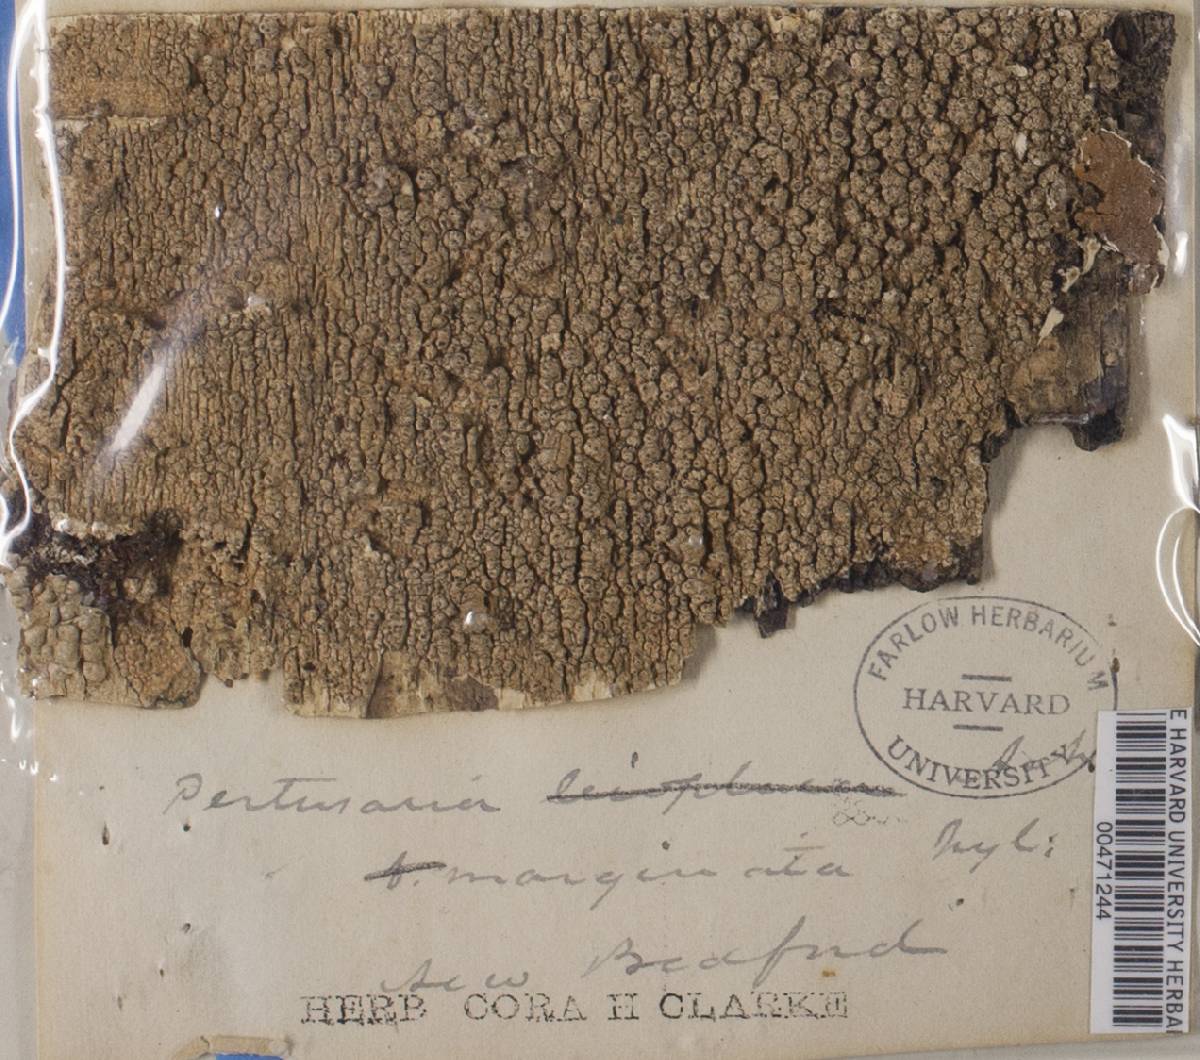 FARLOW HERBARIUM
HARVARD
UNIVERSITY
Pertusaria leioplaca
b. marginata Nyl:
New Bedford
HERB CORA H CLARKE
E HARVARD UNIVERSITY HERBA
00471244